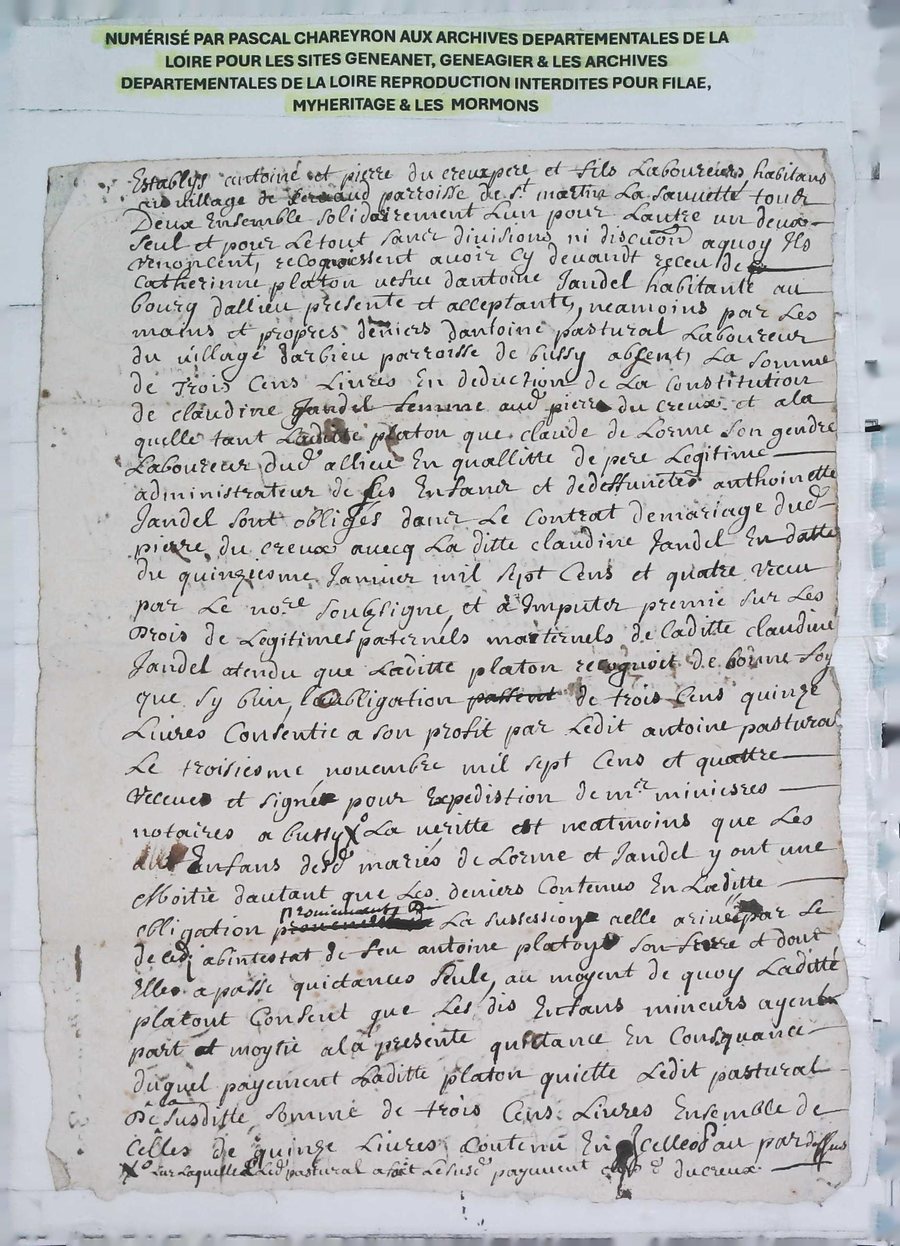 NUMÉRISÉ PAR PASCAL CHAREYRON AUX ARCHIVES DEPARTEMENTALES DE LA
LOIRE POUR LES SITES GENEANET, GENEAGIER & LES ARCHIVES
DEPARTEMENTALES DE LA LOIRE REPRODUCTION INTERDITES POUR FILAE,
MYHERITAGE & LES MORMONS
Establys antoine et pierre du creux pere et fils Laboureurs habitans
au village de parroisse de st martin La sauueté tous
Deux Ensemble solidairement Lun pour Lautre un deux
seul et pour Le tout sans divisions ni discuon aquoy Ils
renoncent, recognoissent auoir Cy deuandt receu de
Catherinne platon uesue dantoine Jandel habitante au
bourg dallieu presente et acceptante, neamoins par Les
mains et propres deniers dantoine pastural Laboureur
du uillage darbieu parroisse de bussy absent, La somme
de Trois Cens Liures En deduction de La Constitution
de claudine Jandel femme aud pierre du creux et ala
quelle tant Laditte platon que claude de Lorme son gendre
Laboureur dud allieu En quallitte de pere Legitime
administrateur de ses Enfans et de deffuncte anthoinette
Jandel sont obligés dans Le Contrat de mariage dud
pierre du creux auecq La ditte claudine Jandel En datte
du quinziesme Januier mil sept Cens et quatre receu
par Le nore soubsigne, et a Imputer premie sur Les
Drois de Legitimes paternels maternels de laditte claudine
Jandel atendu que Laditte platon recognoit de bonne foy
que sy bien l'oubligation passent de trois Cens quinze
Liures Consentie a son profit par Ledit antoine pastural
Le troisiesme nouembre mil sept Cens et quattre
receue et signée pour Expedistion de mre
notaires a bussy Xo La ueritte est neatmoins que Les
Enfans desd mariés de Lorme et Jandel y ont une
Moitié dautant que Les deniers Contenus En Laditte
obligation La sussession aelle ariuée par Le
deced abintestat de feu antoine platon son frere et dont
Elle a passé quictances seule, au moyent de quoy Laditte
platont Consent que Les dis Enfans mineurs ayent
part et moytie ala presente quictance En Consquance
duquel payement Laditte platon quictte Ledit pastural
De La susditte somme de trois Cens Liures Ensemble de
Celles de quinze Liures Contenu En Icelle au par dessus
Xo sur Laquelle Led pastural a fait Le susd payement du creux